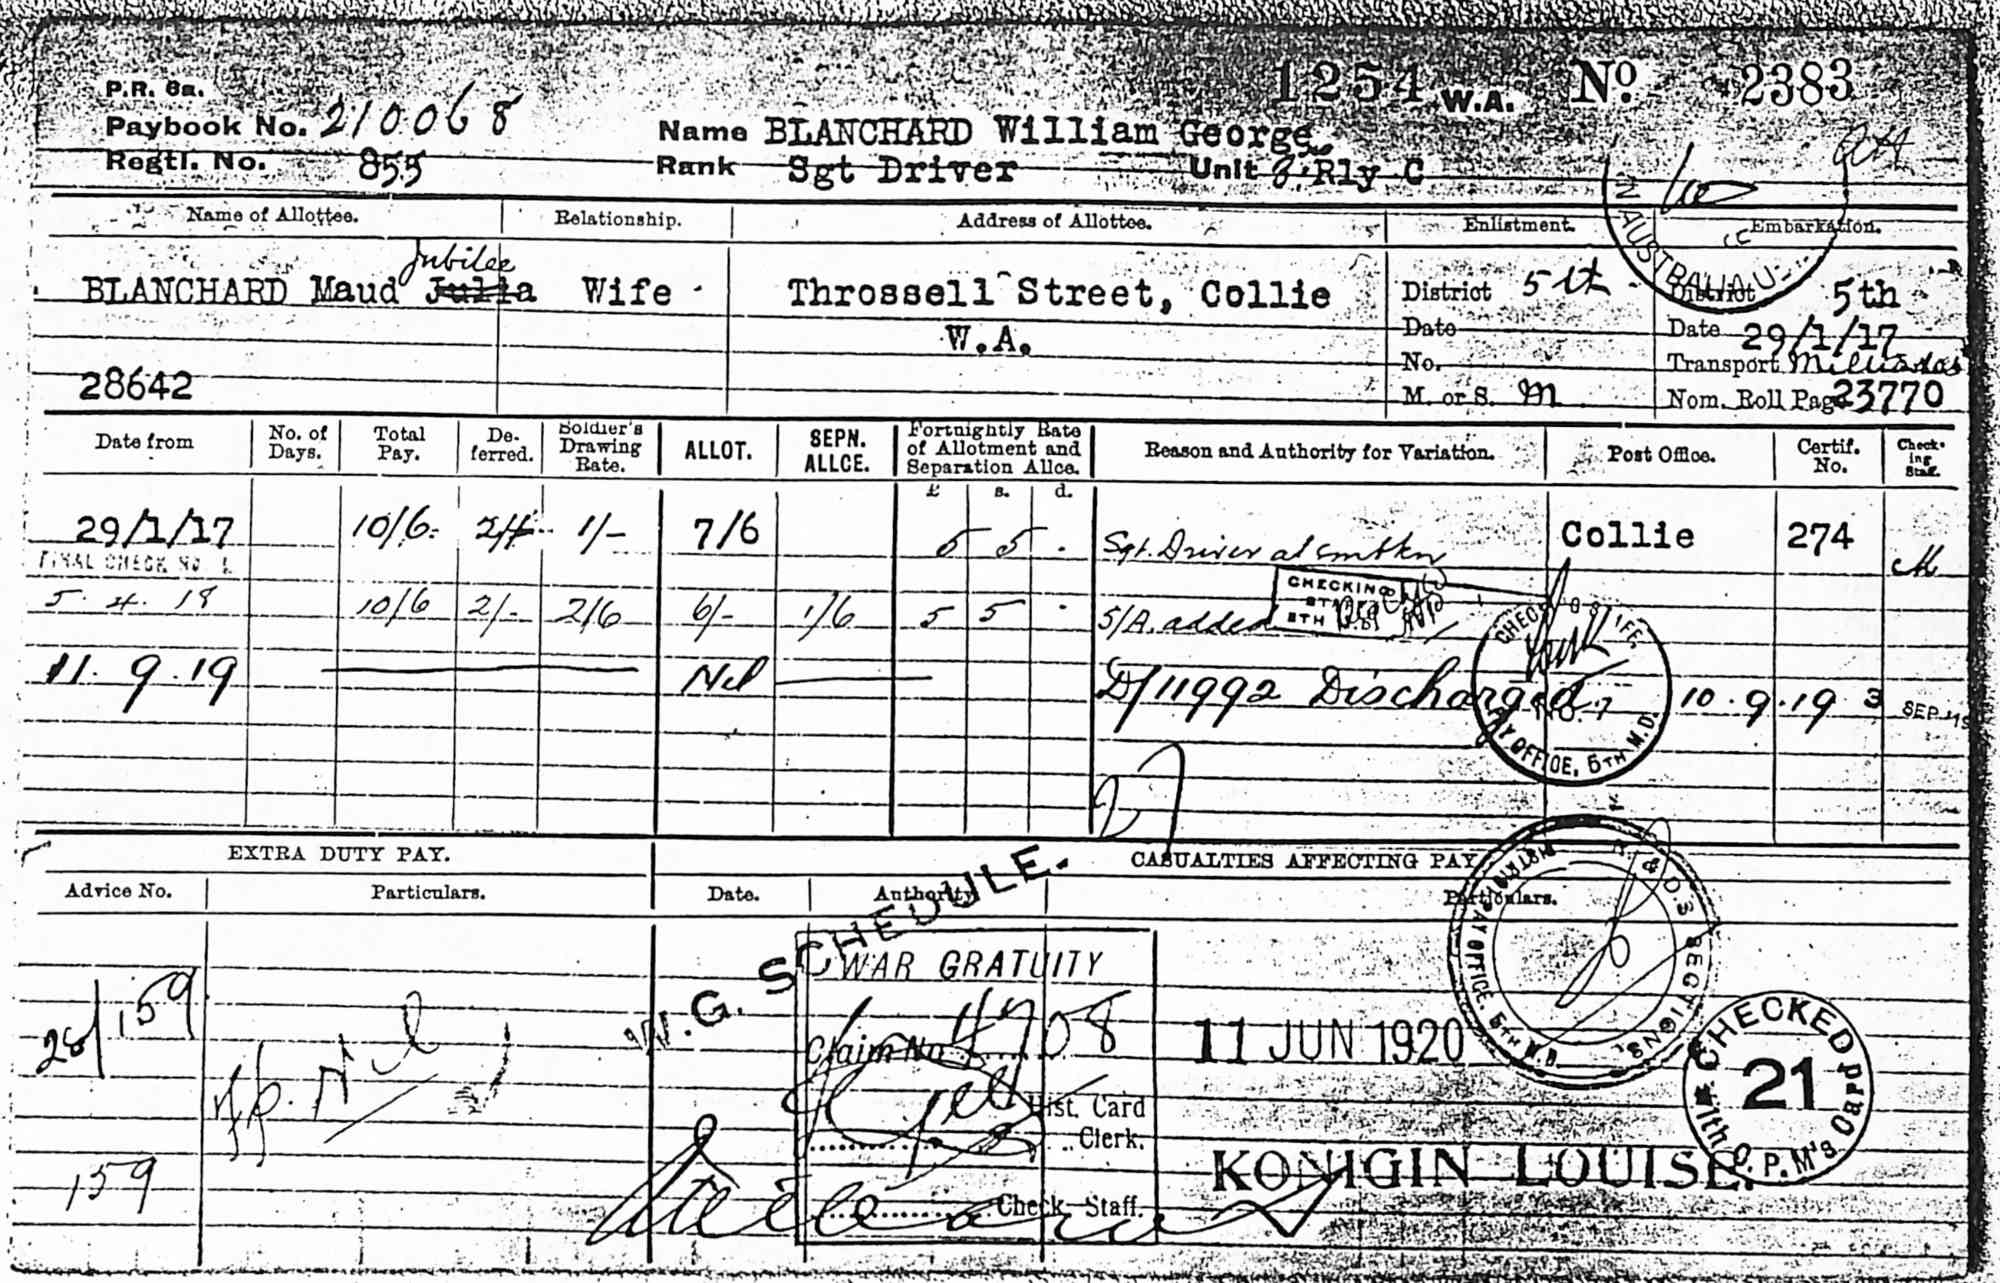 1254 W.A. No. 2383
P.R. 6a.
Paybook No. 210068
Name BLANCHARD William George
Regtl. No. 855
Rank Sgt Driver Unit Rly C
IN AUSTRALIA
Name of Allottee. Relationship. Address of Allottee. Enlistment. Embarkation.
Jubilee
BLANCHARD Maud Julia Wife Throssell Street, Collie
W.A.
District 5th District 5th
Date Date 29/1/17
No. Transport Miltiades
28642
M. or S. M Nom. Roll Page 23770
Date from No. of Days. Total Pay. De-ferred. Soldier's Drawing Rate. ALLOT. SEPN. ALLCE. Fortnightly Rate of Allotment and Separation Allce. Reason and Authority for Variation. Post Office. Certif. No. Check-ing Staff.
£ s. d.
29/1/17 10/6 1/- 7/6 5 5 . Sgt. Driver at embkn Collie 274
FINAL CHECK No 1
CHECKING STAFF 5TH M.D.
5.4.18 10/6 2/- 2/6 6/- 1/6 5 5 . S/A. added
11.9.19 Nil D/11992 Discharged 10.9.19 3 SEP '19
CHECKING STAFF, No. 7 PAY OFFICE, 5TH M.D.
EXTRA DUTY PAY. CASUALTIES AFFECTING PAY
Advice No. Particulars. Date. Authority Particulars.
W.G. SCHEDULE.
R. & D.3 SECTIONS. PAY OFFICE, 5TH M.D.
WAR GRATUITY
28/159 Nil
Claim No. 4708
11 JUN 1920
Hist. Card
Clerk.
CHECKED 21 11th D.P.M's Card
159
KONIGIN LOUISE.
Check Staff.